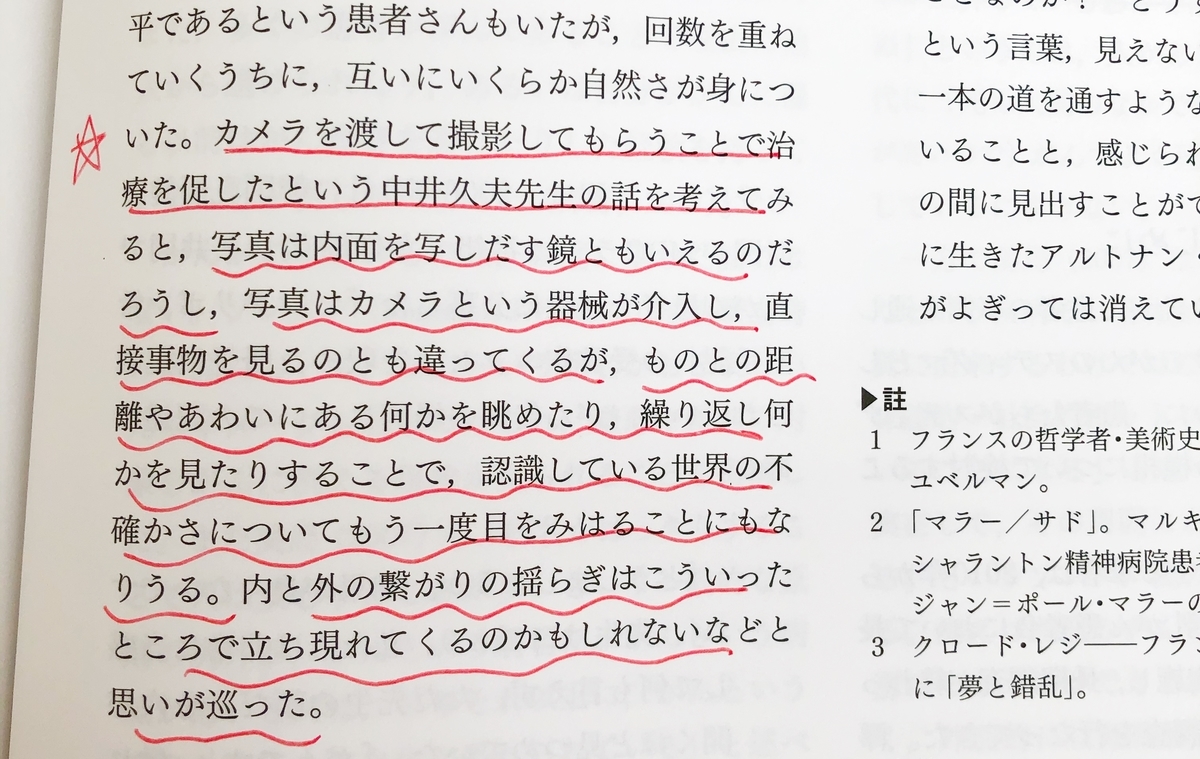 平であるという患者さんもいたが，回数を重ね
ていくうちに，互いにいくらか自然さが身につ
いた。カメラを渡して撮影してもらうことで治
療を促したという中井久夫先生の話を考えてみ
ると，写真は内面を写しだす鏡ともいえるのだ
ろうし，写真はカメラという器械が介入し，直
接事物を見るのとも違ってくるが，ものとの距
離やあわいにある何かを眺めたり，繰り返し何
かを見たりすることで，認識している世界の不
確かさについてもう一度目をみはることにもな
りうる。内と外の繋がりの揺らぎはこういった
ところで立ち現れてくるのかもしれないなどと
思いが巡った。
という言葉，見えない
一本の道を通すような
いることと，感じられ
の間に見出すことがで
に生きたアルトナン・
がよぎっては消えてい
▶註
1 フランスの哲学者・美術史
ユベルマン。
2 「マラー／サド」。マルキ
シャラントン精神病院患者
ジャン＝ポール・マラーの
3 クロード・レジ――フラン
に「夢と錯乱」。